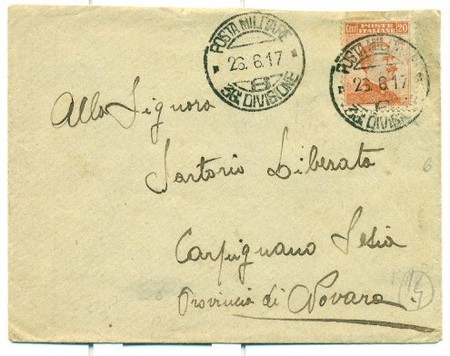 POSTA MILITARE
26.6.17
8
36ª DIVISIONE
POSTE ITALIANE
Cent 20
POSTA MILITARE
26.6.17
36ª DIVISIONE
Alla Signora
Sartorio Liberata
Carpignano Sesia
Provincia di Novara
6
14